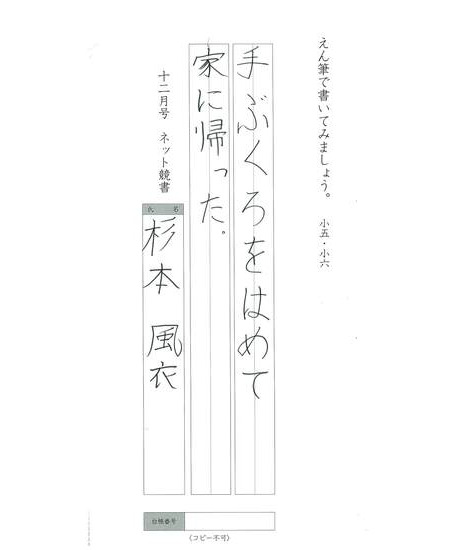 えん筆で書いてみましょう。 小五・小六
手ぶくろをはめて
家に帰った。
十二月号 ネット競書
氏名
杉本 風衣
台帳番号
(コピー不可)